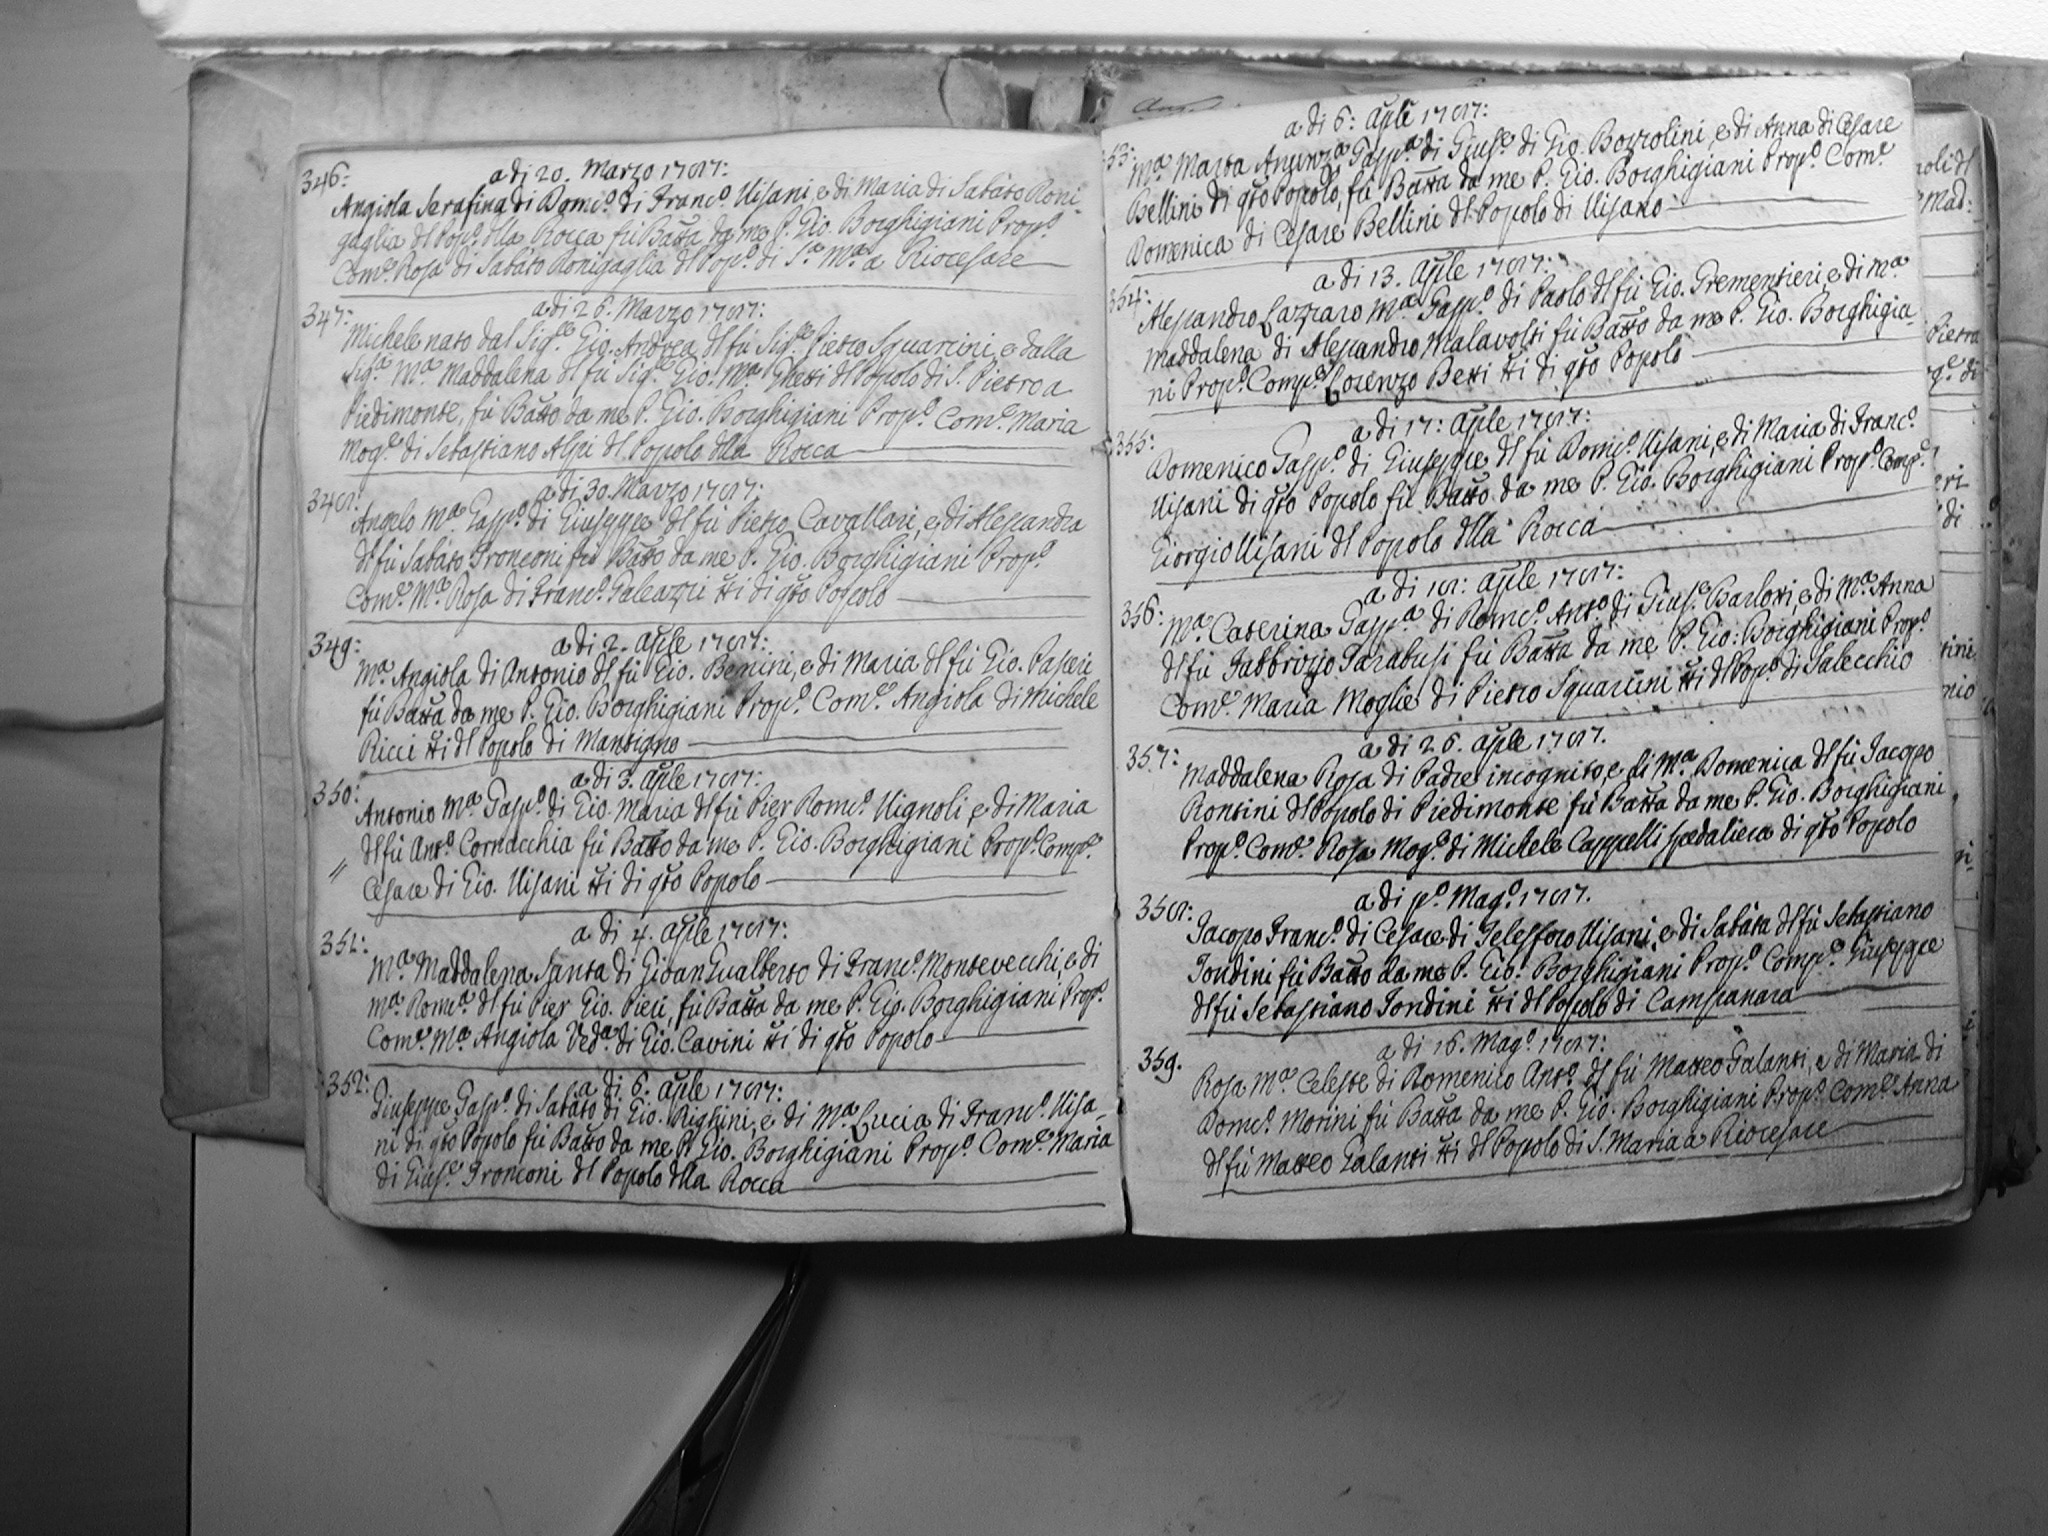 346:
a di 20. Marzo 1787:
Angiola Serafina di Domco. di Franco. Uisani, e di Maria di Sabato Roni-
gaglia dl Popo. dlla Rocca fu Batta da me P. Gio. Borghigiani Propo.
Come. Rosa di Sabato Ronigaglia dl Popo. di Sa. Ma. a Riocesare
347:
a di 26. Marzo 1787:
Michele nato dal Sigre. Gio. Andrea dl fu Sigre. Pietro Squarcini, e dalla
Siga. Ma. Maddalena dl fu Sigre. Gio: Ma. Ghetti dl Popolo di S. Pietro a
Piedimonte, fu Batto da me P. Gio. Borghigiani Propo. Come. Maria
Moge. di Sebastiano Alpi dl Popolo dlla Rocca
348:
a di 30. Marzo 1787:
Angelo Ma. Gaspo. di Giuseppe dl fu Pietro Cavallari, e di Alessandra
dl fu Sabato Tronconi fu Batto da me P. Gio. Borghigiani Propo.
Come. Ma. Rosa di Franco. Galeazzi tti di qto Popolo
349:
a di 2. aple 1787:
Ma. Angiola di Antonio dl fu Gio. Bemini, e di Maria dl fu Gio. Paseri
fu Batta da me P. Gio. Borghigiani Propo. Come. Angiola di Michele
Ricci tti dl Popolo di Mantigno
350:
a di 3. aple 1787:
Antonio Ma. Gaspo. di Gio. Maria dl fu Pier Domco. Uignoli, e di Maria
dl fu Anto. Cornacchia fu Batto da me P. Gio. Borghigiani Propo. Compe.
//
Cesare di Gio. Uisani tti di qto Popolo
351:
a di 4. aple 1787:
Ma. Maddalena Santa di Giovan Gualberto di Franco. Montevecchi, e di
Ma. Doma. dl fu Pier Gio. Pieri, fu Batta da me P. Gio. Borghigiani Propo.
Come. Ma. Angiola Veda. di Gio. Cavini tti di qto Popolo
352:
a di 6. aple 1787:
Giuseppe Gaspo. di Sabato di Gio. Righini, e di Ma. Lucia di Franco. Uisa-
ni di qto Popolo fu Batto da me P. Gio. Borghigiani Propo. Come. Maria
di Giuse. Tronconi dl Popolo dlla Rocca
a di 6: aple 1787:
53:
Ma. Marta Anunza. Gaspa. di Giuse. di Gio. Bozzolini, e di Anna di Cesare
Bellini di qto Popolo, fu Batta da me P. Gio. Borghigiani Propo. Come.
Domenica di Cesare Bellini dl Popolo di Uisano
a di 13. aple 1787:
354:
Alessandro Lazzaro Ma. Gaspo. di Paolo dl fu Gio. Trementieri, e di Ma.
Maddalena di Alessandro Malavolti fu Batto da me P. Gio. Borghigia-
ni Propo. Compe. Lorenzo Betti tti di qto Popolo
a di 17: aple 1787:
355:
Domenico Gaspo. di Giuseppe dl fu Domco. Uisani, e di Maria di Franco.
Uisani di qto Popolo fu Batto da me P. Gio. Borghigiani Propo. Compe.
Giorgio Uisani dl Popolo dlla Rocca
a di 18: aple 1787:
356:
Ma. Caterina Gaspa. di Domco. Anto. di Giuse. Barlotti, e di Ma. Anna
dl fu Fabbrizio Farabusi fu Batta da me P. Gio: Borghigiani Propo.
Come. Maria Moglie di Pietro Squarcini tti dl Popo. di Salecchio
a di 26. aple 1787.
357:
Maddalena Rosa di Padre incognito, e di Ma. Domenica dl fu Jacopo
Rontini dl Popolo di Piedimonte fu Batta da me P. Gio. Borghigiani
Propo. Come. Rosa Moge. di Michele Cappelli spedaliera di qto Popolo
a di po. Mago. 1787.
358:
Jacopo Franco. di Cesare di Telesforo Uisani, e di Sabata dl fu Sebastiano
Tondini fu Batto da me P. Gio. Borghigiani Propo. Compe. Giuseppe
dl fu Sebastiano Tondini tti dl Popolo di Campanara
a di 16. Mago. 1787:
359.
Rosa Ma. Celeste di Domenico Anto. dl fu Matteo Galanti, e di Maria di
Domco. Morini fu Batta da me P. Gio. Borghigiani Propo. Come. Anna
dl fu Matteo Galanti tti dl Popolo di S. Maria a Riocesare